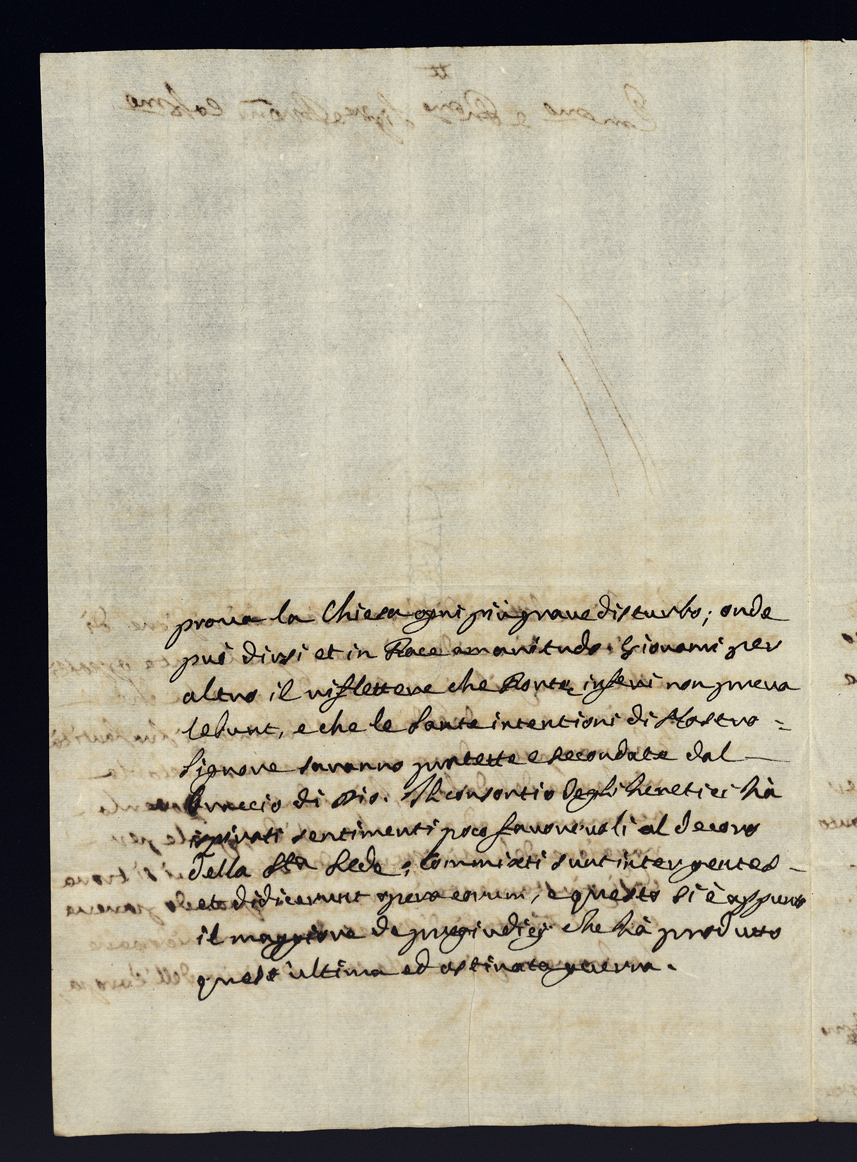 proua la Chiesa ogni più graue disturbo; onde
può dirsi et in Pace amaritudo. Giouami per
altro il riflettere che Portę inferi non preua
lebunt, e che le Sante intentioni di Nostro =
Signore saranno protette e secondate dal
braccio di Dio. Il consortio degli heretici hà
ispirati sentimenti poco fauoreuoli al decoro
della Sta Sede; Commixti sunt inter gentes -
et didicerunt opera eorum, e questo si è appunto
il maggiore de pregiudicij che hà prodotto
quest'ultima ed ostinata guerra.